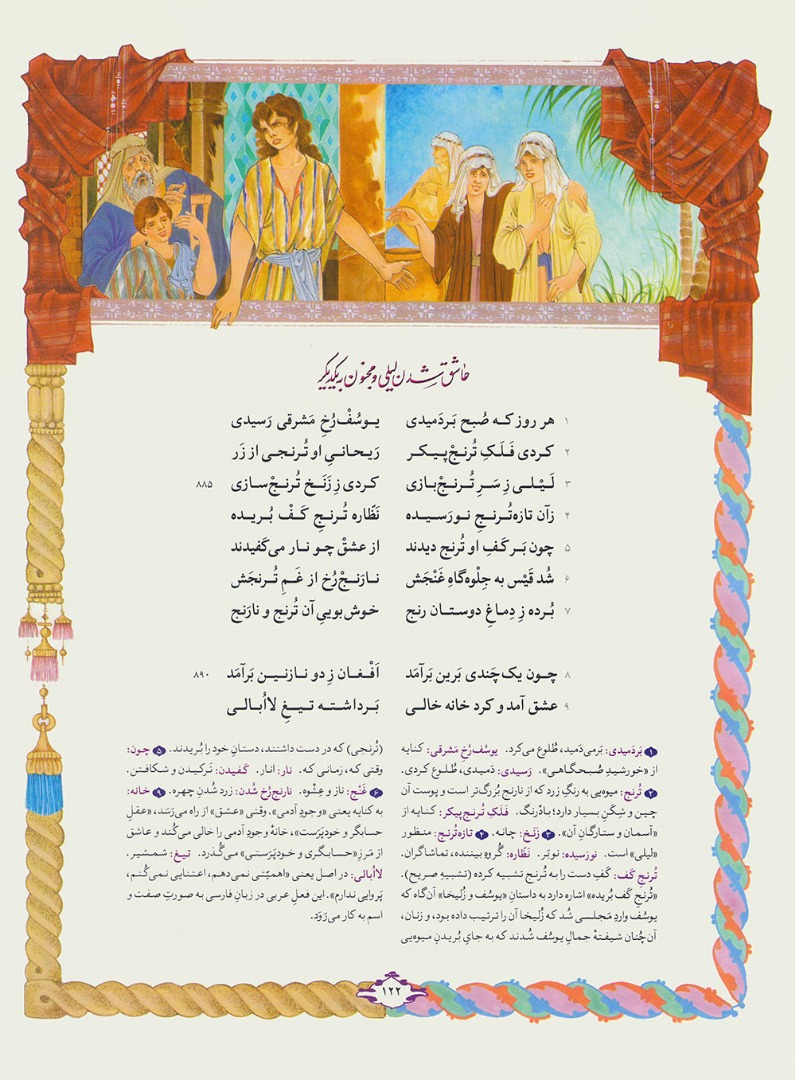 عاشق شدن لیلی و مجنون بر یکدیگر
۱ هر روز که صُبح بَردَمیدی یوسُفْ‌رُخِ مَشرقی رَسیدی
۲ کردی فَلَکِ تُرنج‌ْپیکر رَیحانیِ او تُرنجی از زَر
۳ لَیْلی زِ سَرِ تُرنج‌ْبازی کردی زِ زَنَخ تُرنج‌ْسازی ۸۸۵
۴ زآن تازه‌تُرنجِ نورَسیده نَظّاره تُرنجِ کَفْ بُریده
۵ چون بَر کَفِ او تُرنج دیدند از عشقْ چو نار می‌کَفیدند
۶ شُد قَیْس به جِلْوه‌گاهِ غَنْجَش نارَنج‌ْرُخ از غَمِ تُرنجَش
۷ بُرده زِ دِماغِ دوستان رنج خوش‌بوییِ آن تُرنج و نارَنج
۸ چون یک چَندی بَرین بَرآمَد اَفْغان زِ دو نازنین بَرآمَد ۸۹۰
۹ عشق آمد و کرد خانه خالی بَرداشته تیغِ لااُبالی
۱ بَردَمیدی: بَرمی‌دَمید، طُلوع می‌کرد. یوسُف‌رُخِ مَشرقی: کنایه
از «خورشیدِ صُبحگاهی». رَسیدی: دَمیدی، طُلوع کردی.
۲ تُرنج: میوه‌یی به رنگِ زرد که از نارنج بُزرگ‌تر است و پوست آن
چین و شِکَنِ بسیار دارد؛ بادْرنگ. فَلَکِ تُرنج‌پیکر: کنایه از
«آسمان و ستارگانِ آن». ۳ زَنَخ: چانه. ۴ تازه‌تُرنج: منظور
«لیلی» است. نورَسیده: نوبَر. نَظّاره: گُروهِ بیننده، تماشاگران.
تُرنجِ کَف: کَفِ دست را به تُرنج تشبیه کرده (تشبیهِ صریح).
«تُرنجِ کَف بُریده» اشاره دارد به داستانِ «یوسُف و زُلیخا» آن‌گاه که
یوسُف واردِ مَجلسی شُد که زُلیخا آن را ترتیب داده بود، و زنان،
آن چُنان شیفتهٔ جمالِ یوسُف شُدند که به جایِ بُریدنِ میوه‌یی
(تُرنجی) که در دست داشتند، دستانِ خود را بُریدند. ۵ چون:
وقتی که، زمانی که. نار: انار. کَفیدن: تَرکیدن و شکافتن.
۶ غَنْج: ناز و عِشْوه. نارنج‌رُخ شُدن: زرد شُدنِ چهره. ۹ خانه:
به کنایه یعنی «وجودِ آدمی». وقتی «عشق» از راه می‌رَسَد، «عقلِ
حسابگر و خودپَرَست»، خانهٔ وجودِ آدمی را خالی می‌کُند و عاشق
از مَرزِ «حسابگری و خودپَرَستی» می‌گُذرد. تیغ: شمشیر.
لااُبالی: در اصل یعنی «اهمیّتی نمی‌دهم، اعتنایی نمی‌کُنم،
پَروایی ندارم». این فعلِ عربی در زبانِ فارسی به صورتِ صفت و
اسم به کار می‌رَوَد.
۱۲۲